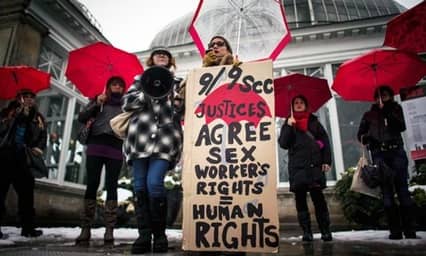 9/9 SCC
JUSTICES
AGREE
SEX
WORKERS
RIGHTS
=
HUMAN
RIGHTS